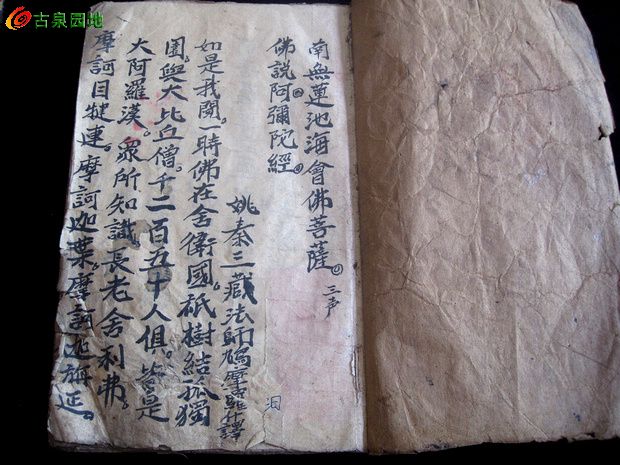 古泉园地
南無蓮池海會佛菩薩。三声
佛說阿彌陀經。
姚秦三藏法師鳩摩羅什譯
如是我聞。一時佛在舍衛國。祇樹結孤獨
園。與大比丘僧。千二百五十人俱。皆是
大阿羅漢。衆所知識。長老舍利弗。
摩訶目犍連。摩訶迦葉。摩訶迦旃延。